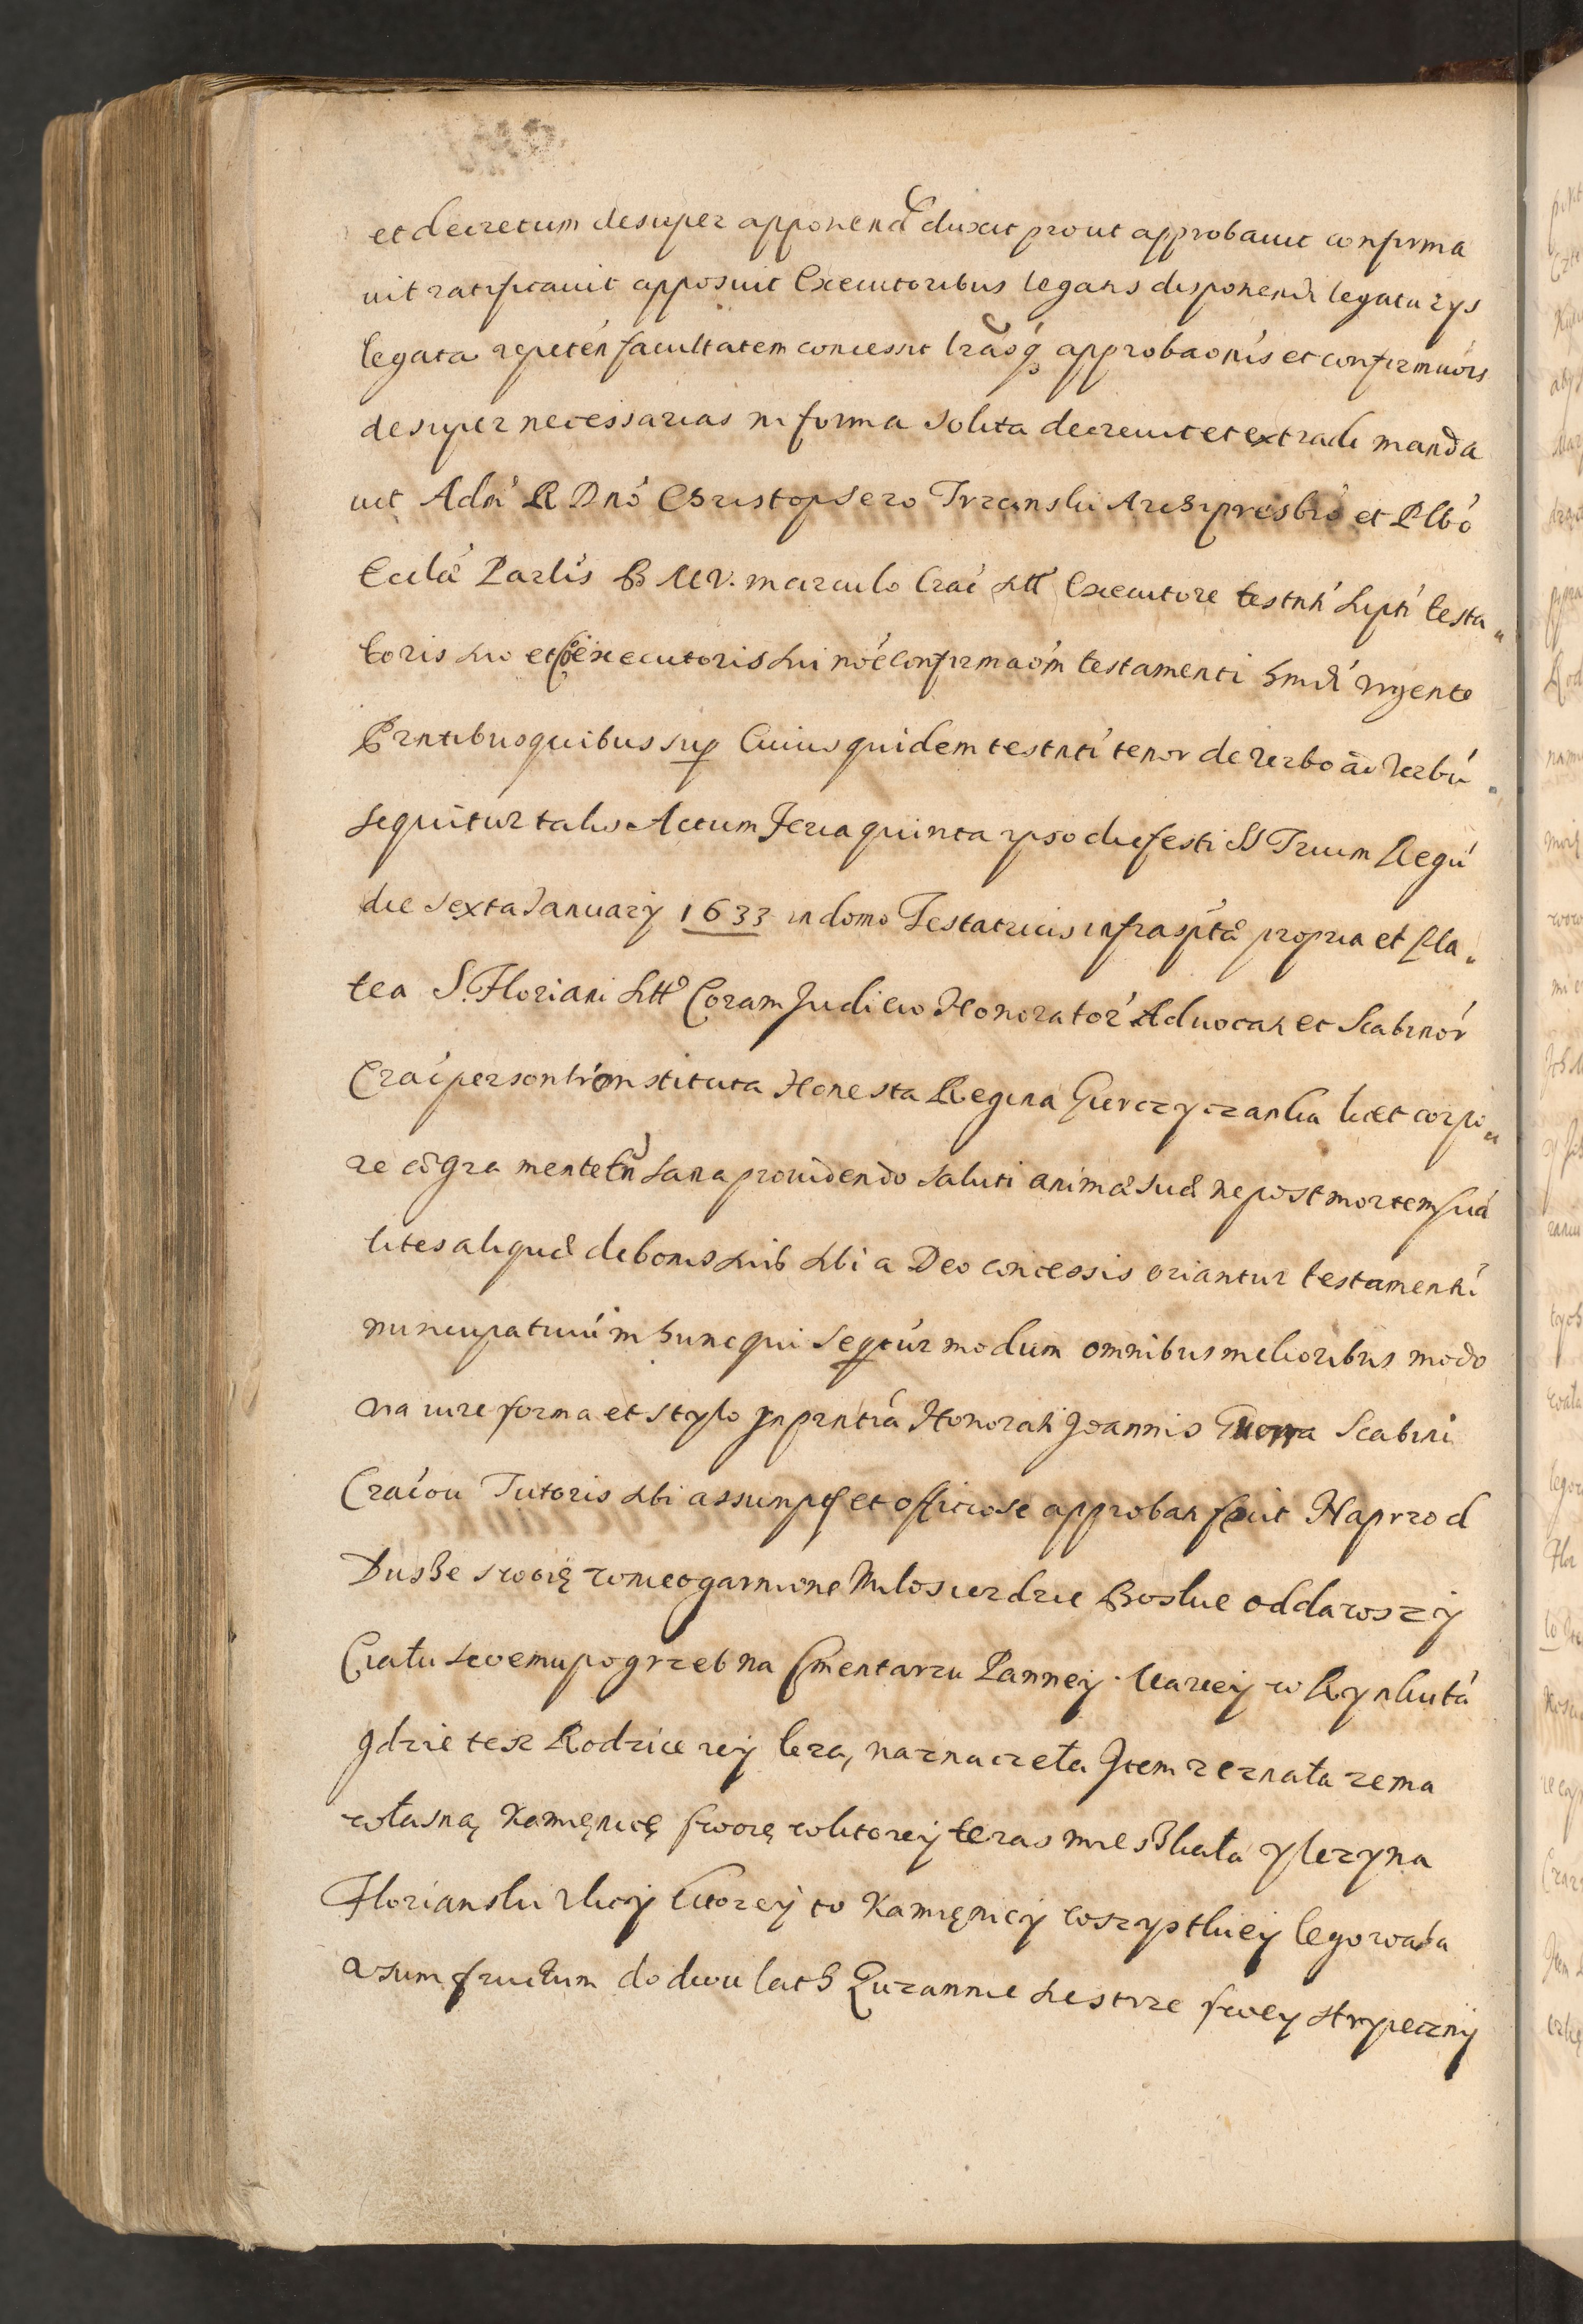 et decretum desuper apponend duxit prout approbauit confirma
uit ratificauit apposuit Executoribus legatis disponendi legatarys
legata repeten facultatem concessit lrasq approbaonis et confirmaois
desuper necessarias in forma solita decreuit et extradi manda
uit Adm R Dno Christophero Trzcinski Archipresbro et Plbo
Eccla Parlis B M V. in circulo Crac sitt Executore testnti supti testa
toris suo et Coexecutoris sui noe Confirmaom testamenti hmdi vrgente
Prntibus quibus sup Cuius quidem testnti tenor de verbo ad verbu
sequitur talis Actum Feria quinta ipso die festi SS Trium Regu
die sexta January 1633 in domo Testatricis infraspta propria et Pla
tea S. Floriani sitt Coram Judicio Honorator Aduocati et Scabinor
Crac personlr constituta Honesta Regina Gierczyczanka licet corpo
re aegra mente tn sana prouidendo saluti anima sua ne post mortem sua
lites aliqua de bonis suis sibi a Deo concessis oriantur testamenti
nuncupatiuu in hunc qui seqtur modum omnibus melioribus modo
via iure forma et stylo Jn prntia Honorati Joannis Scabini
Cracou Tutoris sibi assumpt et officiose approbati fecit Naprzod
Dusze swoię w nieogarnione Miłosierdzie Boskie oddawszy
Ciału swemu pogrzeb na Cmentarzu Panney Mariey w Rynku tá
gdzie tesz Rodzice iey leza, naznaczeła Jtem zeznała ze ma
własną Kamięnicę swoię w ktorey teras mieszkała y lezy na
Florianski Vlicy ktorey to Kamięnicy wszystkiey legowała
vsumfructum do dwu lath Zuzannie siestrze swey stryieczny